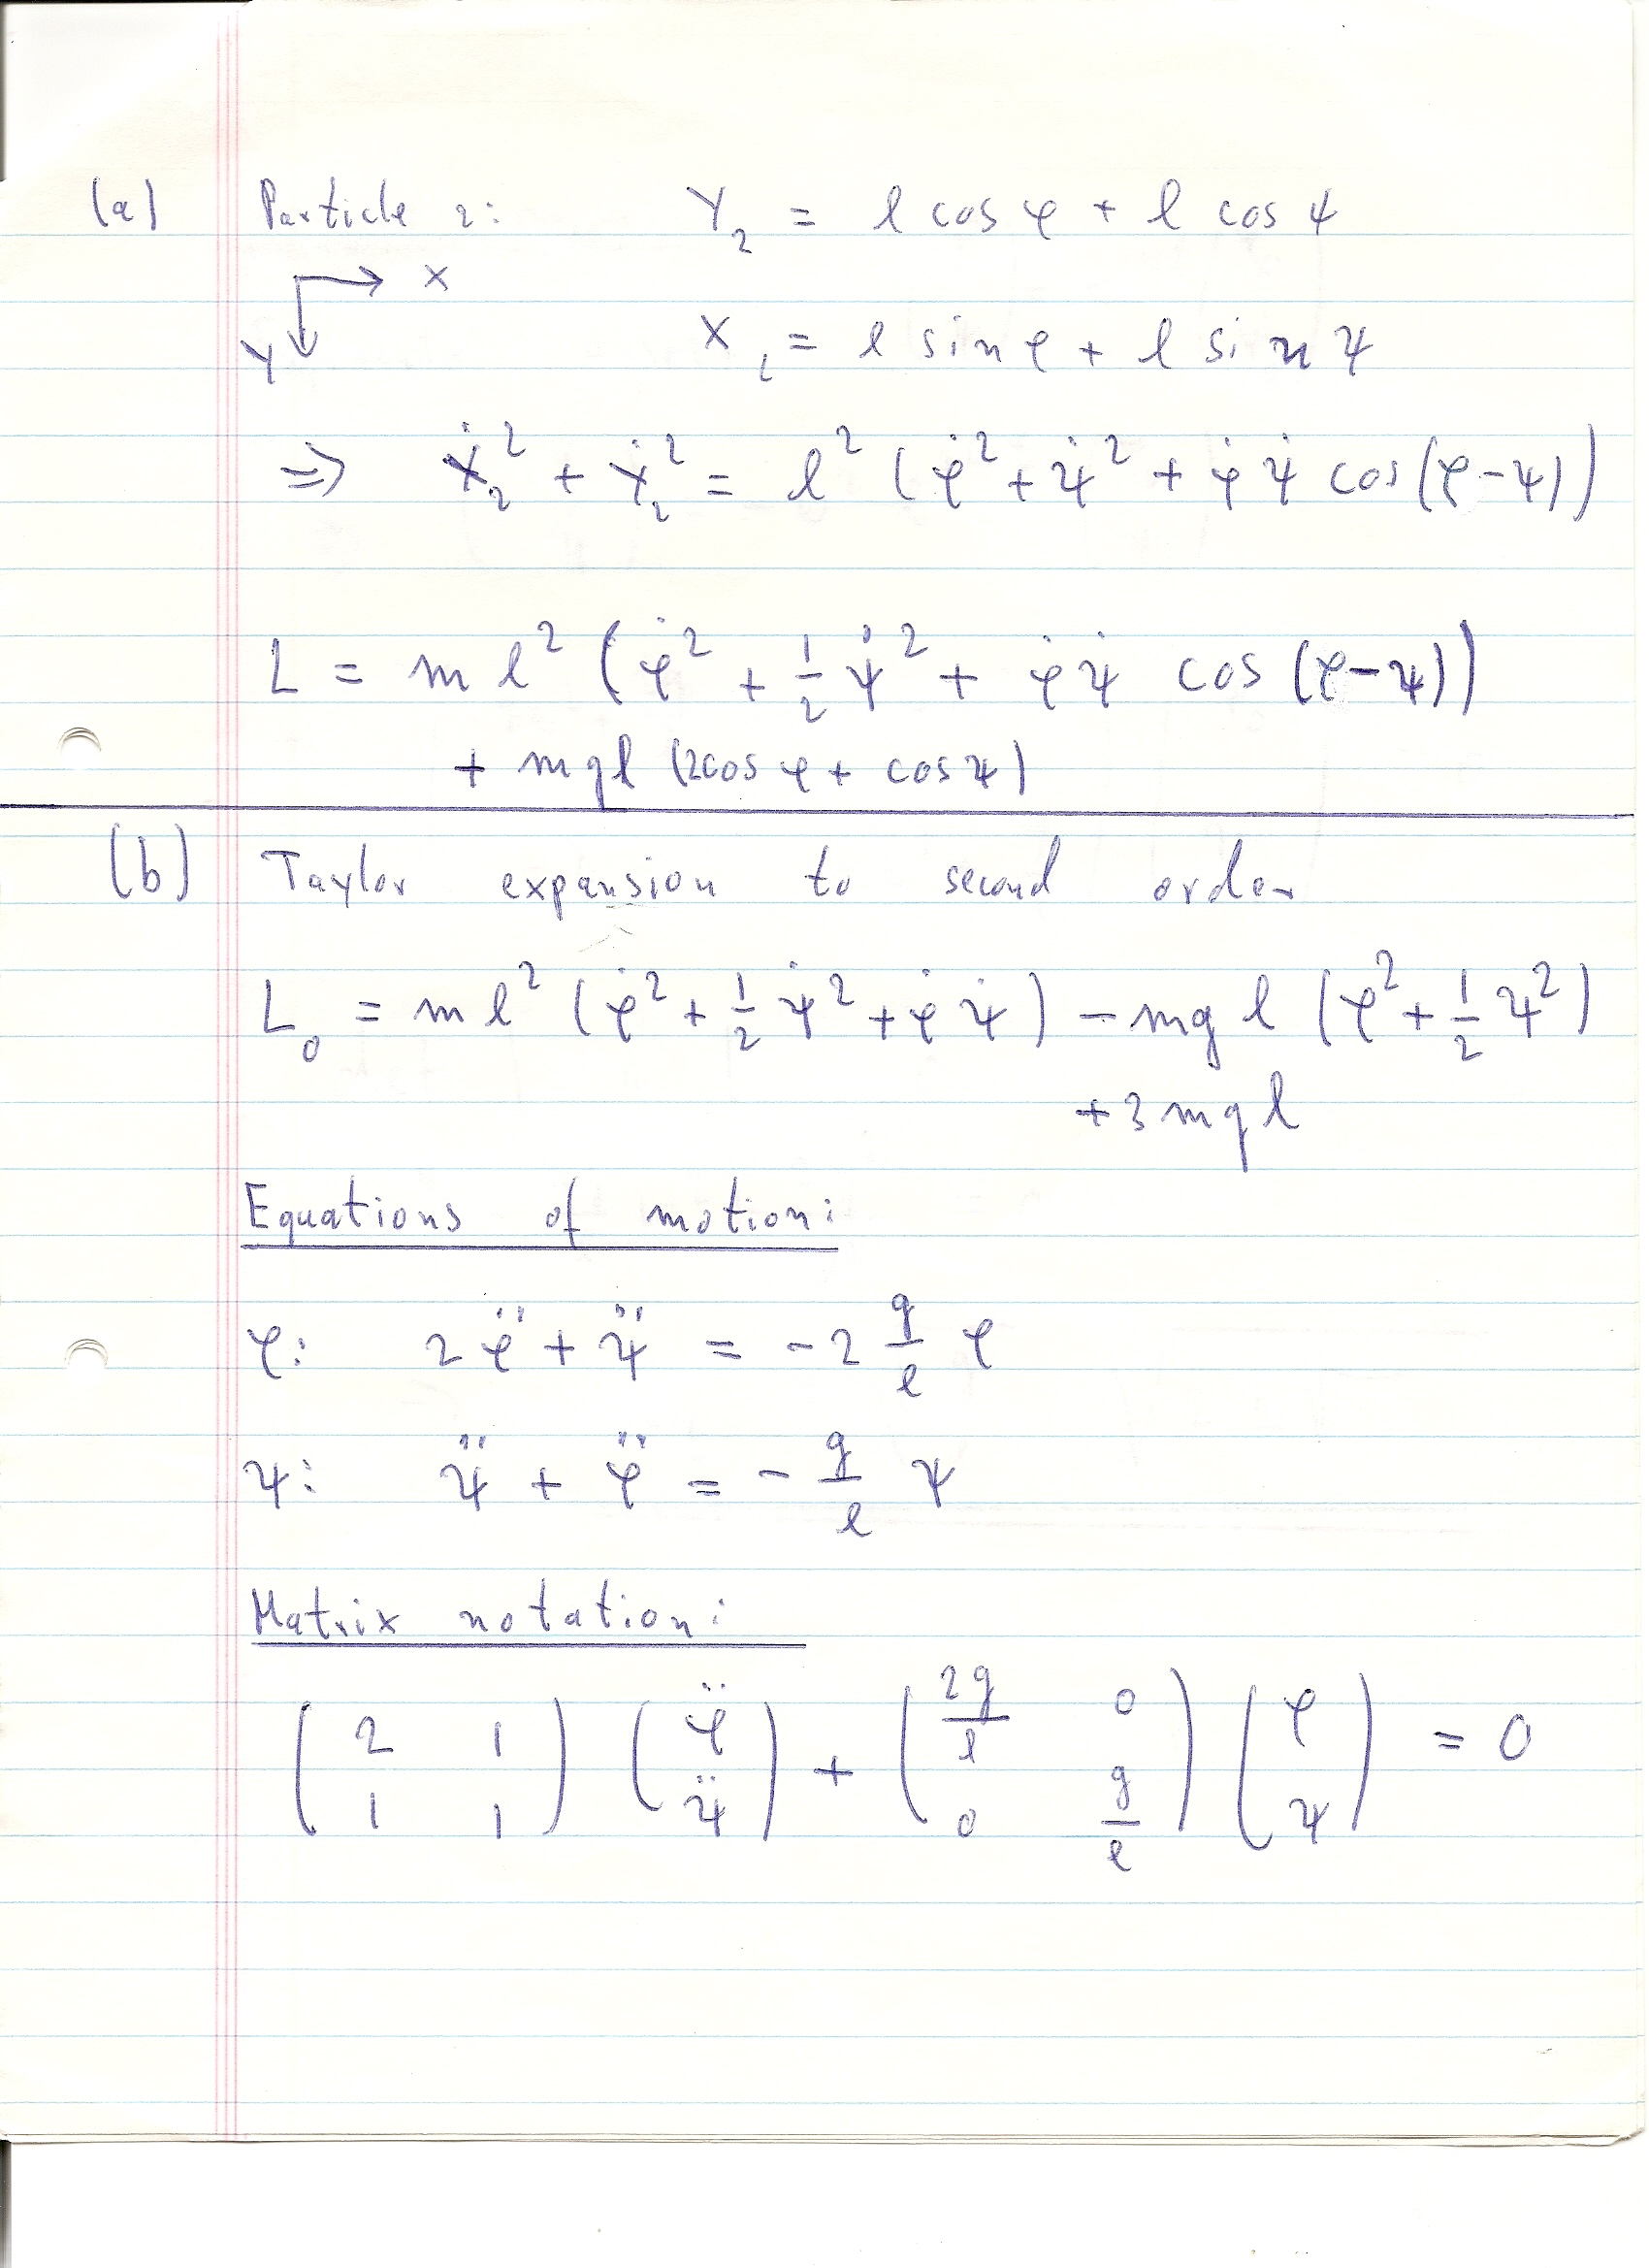 (a) Particle 2: Y₂ = l cos φ + l cos ψ
X
Y
X₂ = l sin φ + l sin ψ
⇒ Ẋ₂² + Ẏ₂² = l² (φ̇² + ψ̇² + φ̇ ψ̇ cos(φ-ψ))
L = m l² (φ̇² + ½ ψ̇² + φ̇ ψ̇ cos (φ-ψ))
+ mgl (2cos φ + cos ψ)
(b) Taylor expansion to second order
L₀ = m l² (φ̇² + ½ ψ̇² + φ̇ ψ̇) - mg l (φ² + ½ ψ²)
+ 3 mg l
Equations of motion:
φ: 2 φ̈ + ψ̈ = -2 g/l φ
ψ: ψ̈ + φ̈ = - g/l ψ
Matrix notation:
( 2 1 ; 1 1 ) ( φ̈ ; ψ̈ ) + ( 2g/l 0 ; 0 g/l ) ( φ ; ψ ) = 0